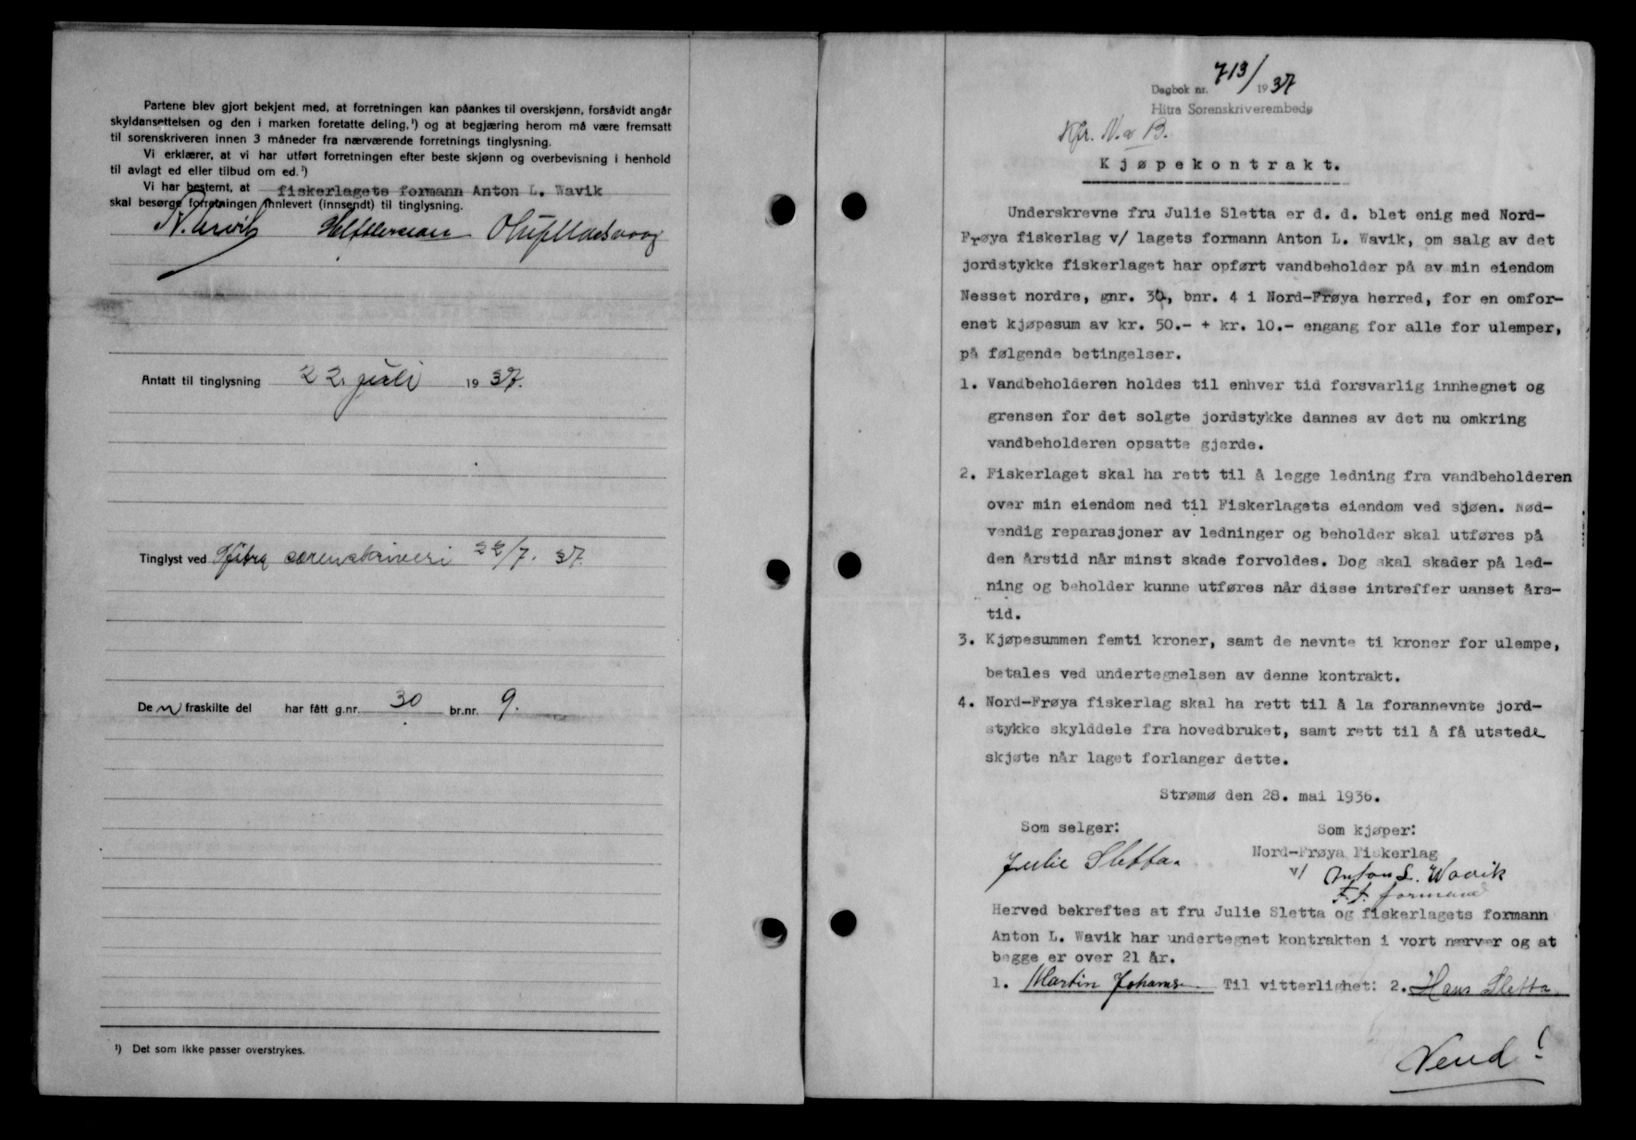 Partene blev gjort bekjent med, at forretningen kan påankes til overskjønn, forsåvidt angår
skyldansettelsen og den i marken foretatte deling,¹) og at begjæring herom må være fremsatt
til sorenskriveren innen 3 måneder fra nærværende forretnings tinglysning.
Vi erklærer, at vi har utført forretningen efter beste skjønn og overbevisning i henhold
til avlagt ed eller tilbud om ed.¹)
Vi har bestemt, at fiskerlagets formann Anton L. Wavik
skal besørge forretningen innlevert (innsendt) til tinglysning.
Antatt til tinglysning 22. juli 1937.
Tinglyst ved Hitra sorenskriveri 22/7. 37.
Den fraskilte del har fått g.nr. 30 br.nr. 9.
¹) Det som ikke passer overstrykes.
Dagbok nr. 713/1937
Hitra Sorenskriverembede
Kfr. N. B.
Kjøpekontrakt.
Underskrevne fru Julie Sletta er d. d. blet enig med Nord-
Frøya fiskerlag v/ lagets formann Anton L. Wavik, om salg av det
jordstykke fiskerlaget har opført vandbeholder på av min eiendom
Nesset nordre, gnr. 30, bnr. 4 i Nord-Frøya herred, for en omfor-
enet kjøpesum av kr. 50.- + kr. 10.- engang for alle for ulemper,
på følgende betingelser.
1. Vandbeholderen holdes til enhver tid forsvarlig innhegnet og
grensen for det solgte jordstykke dannes av det nu omkring
vandbeholderen opsatte gjerde.
2. Fiskerlaget skal ha rett til å legge ledning fra vandbeholderen
over min eiendom ned til Fiskerlagets eiendom ved sjøen. Nød-
vendig reparasjoner av ledninger og beholder skal utføres på
den årstid når minst skade forvoldes. Dog skal skader på led-
ning og beholder kunne utføres når disse intreffer uanset års-
tid.
3. Kjøpesummen femti kroner, samt de nevnte ti kroner for ulempe,
betales ved undertegnelsen av denne kontrakt.
4. Nord-Frøya fiskerlag skal ha rett til å la forannevnte jord-
stykke skylddele fra hovedbruket, samt rett til å få utstede
skjøte når laget forlanger dette.
Strømø den 28. mai 1936.
Som selger:
Som kjøper:
Julie Sletta.
Nord-Frøya Fiskerlag
v/ Anton L. Wavik
F.t. formand
Herved bekreftes at fru Julie Sletta og fiskerlagets formann
Anton L. Wavik har undertegnet kontrakten i vort nærver og at
begge er over 21 år.
1. Martin Johans Til vitterlighet: 2. Hans Sletta
Vend!